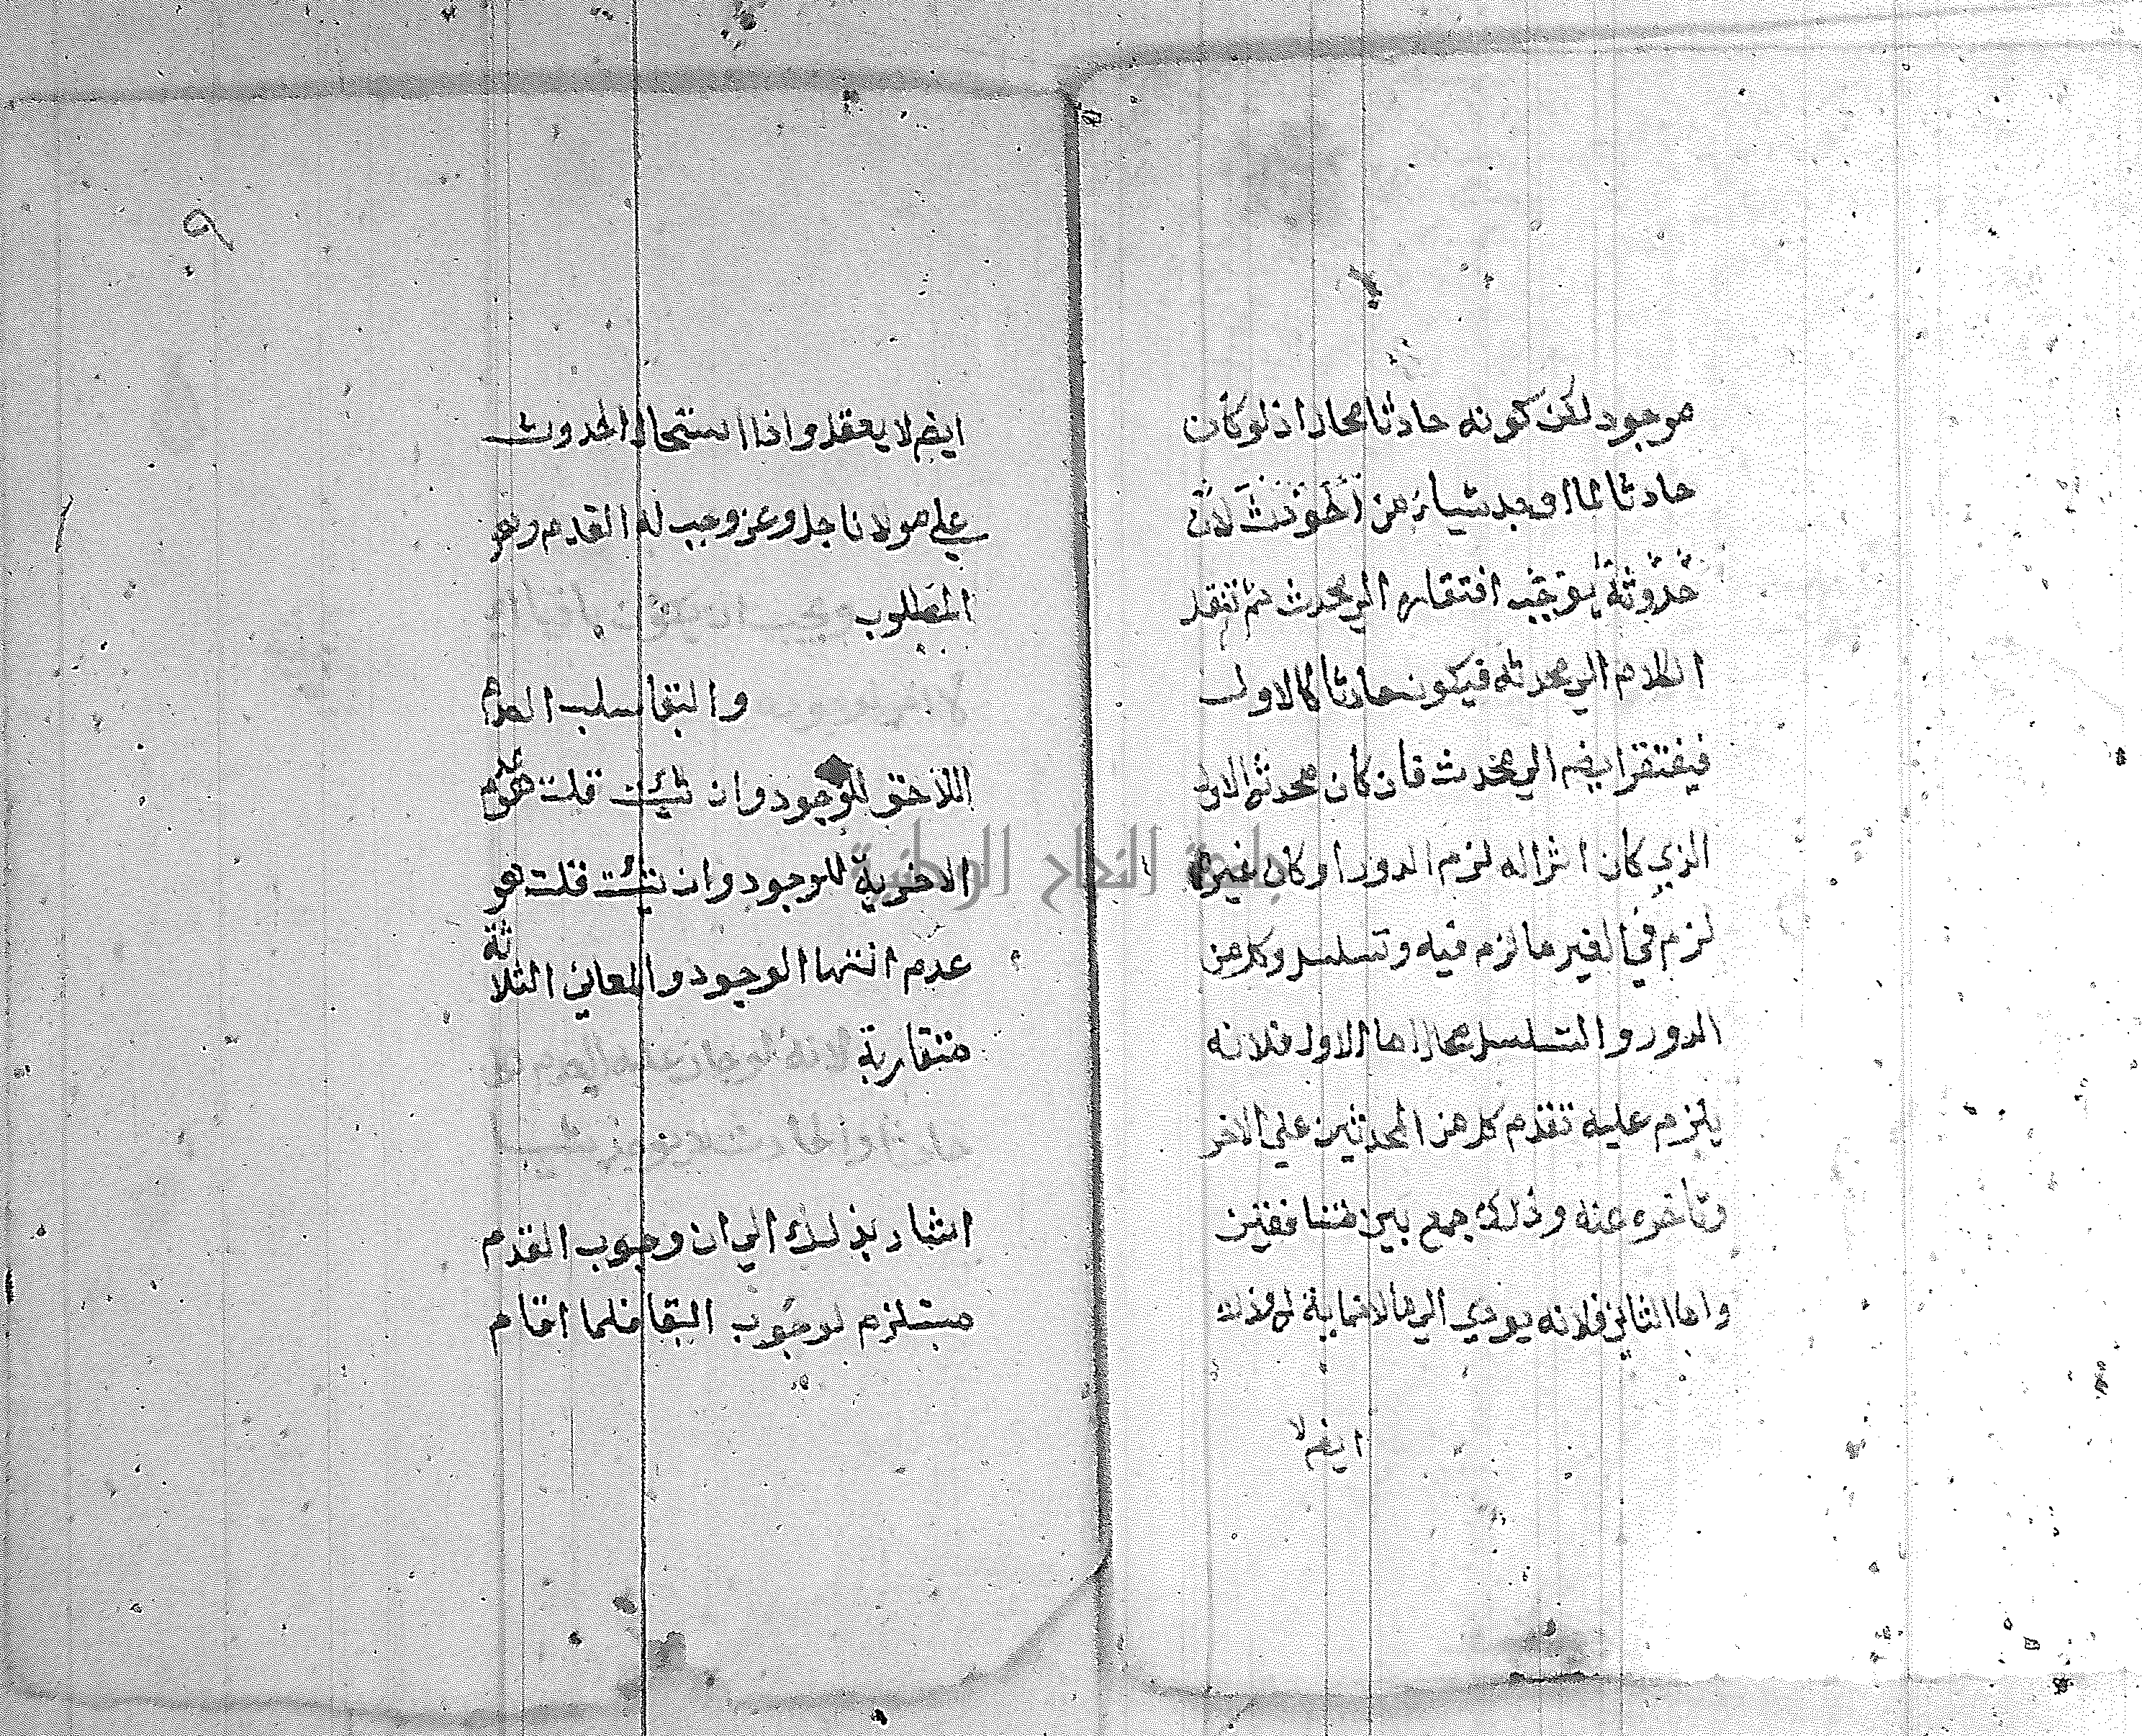 موجود لكن كونه حادثا محال اذ لو كان
حادثا لما اوجد شياء من الحوادث لان
حدوثه يوجب افتقاره الي محدث ثم ننقل
الكلام الي محدثه فيكون حادثا كالاول
فيفتقر ايضا الي محدث فان كان محدثه الاول
الذي كان اثرا له لزم الدور او كان غيره
لزم في الغير ما لزم فيه وتسلسل وكل من
الدور والتسلسل محال اما الاول فلانه
يلزم عليه تقدم كل من المحدثين علي الاخر
وتاخره عنه وذلك جمع بين متنافيين
واما الثاني فلانه يودي الي ما لا نهاية له وذلك
ايضا لا
٩
ايضا لا يعقل واذا استحال الحدوث
علي مولانا جل وعز وجب له القدم وهو
المطلوب ويجب ان يكون باقيا اي
والبقا سلب العدم
اللاحق للوجود وان شئت قلت هو عدم
الاخرية للوجود وان شئت قلت هو
عدم انتها الوجود والمعاني الثلاثة
متقاربة لانه لو جاز عليه العدم لكان
حادثا والحادث
اشار بذلك الي ان وجوب القدم
مستلزم لوجوب البقا فلما اقام
جامعة النجاح الوطنية